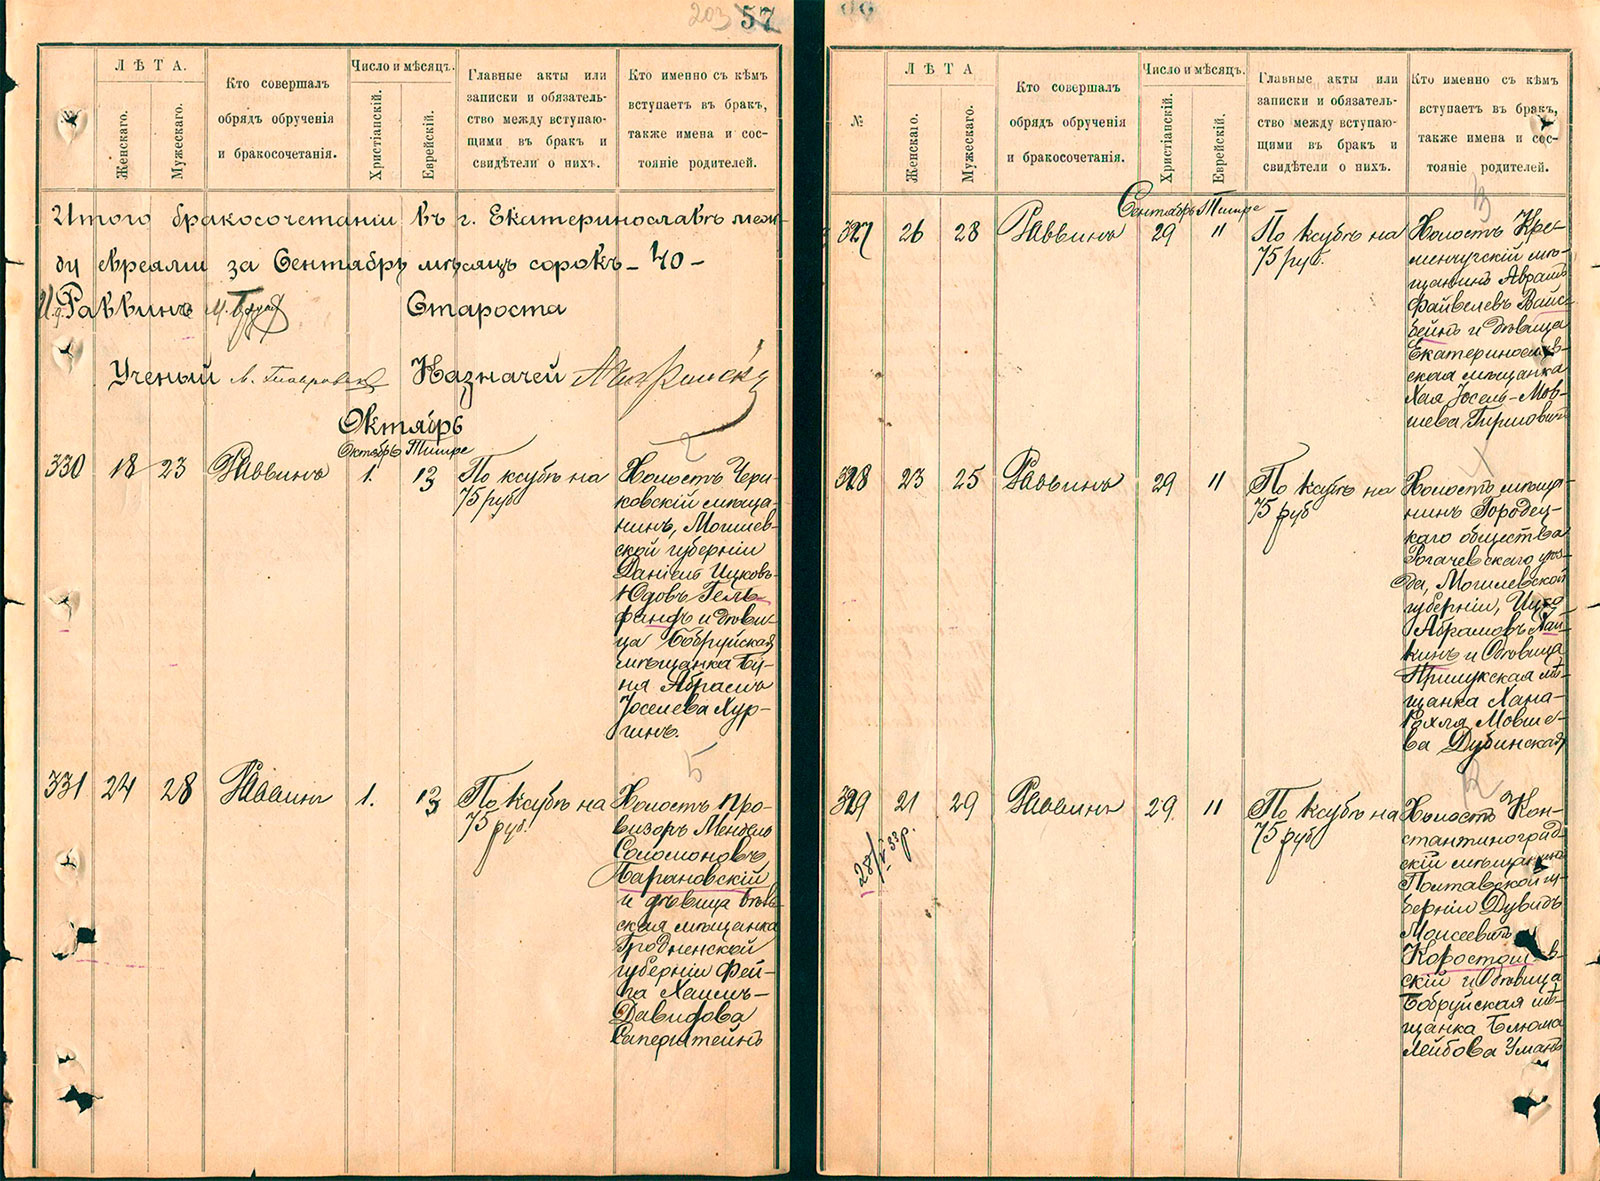 203 57
ЛѢТА.
Женскаго.
Мужескаго.
Кто совершалъ
обрядъ обрученія
и бракосочетанія.
Число и мѣсяцъ.
Христіанскій.
Еврейскій.
Главные акты или
записки и обязатель-
ство между вступаю-
щими въ бракъ и
свидѣтели о нихъ.
Кто именно съ кѣмъ
вступаетъ въ бракъ,
также имена и сос-
тояніе родителей.
Итого бракосочетаніи въ г. Екатеринославѣ меж-
ду евреями за Сентябрь мѣсяцъ сорокъ - 40 -
И.д. Раввинъ Староста
Ученый Казначей
Октябрь
Октябрь Тишре
330 18 23 Раввинъ 1. 13
По ксубѣ на
75 руб
2
Холостъ Чери-
ковскій мѣща-
нинъ, Могилев-
ской губерніи
Даніилъ Ицковъ-
Юдовъ Гель-
фандъ и дѣви-
ца Бобруйская
мѣщанка Бу-
ня Абрамъ
Іоселева Хур-
гинъ.
331 24 28 Раввинъ 1. 13
По ксубѣ на
75 руб.
5
Холостъ Про-
визоръ Мендель
Соломоновъ
Барановскій
и дѣвица
ская мѣщанка
Гродненской
губерніи Фей-
га Хаимъ-
Давидова
Саперштейнъ
№
ЛѢТА
Женскаго.
Мужескаго.
Кто совершалъ
обрядъ обрученія
и бракосочетанія.
Число и мѣсяцъ.
Христіанскій.
Еврейскій.
Главные акты или
записки и обязатель-
ство между вступаю-
щими въ бракъ и
свидѣтели о нихъ.
Кто именно съ кѣмъ
вступаетъ въ бракъ,
также имена и сос-
тояніе родителей.
Сентябрь Тишре
327 26 28 Раввинъ 29 11
По ксубѣ на
75 руб.
3
Холостъ Кре-
менчугскій мѣ-
щанинъ Авраамъ
Файвелевъ Вайс-
бейнъ и дѣвица
Екатеринослав-
ская мѣщанка
Хая Іосель-Мов-
шева Гиршовичъ
328 23 25 Раввинъ 29 11
По ксубѣ на
75 руб
Холостъ мѣща-
нинъ Городец-
каго общества
Рогачевскаго уѣз-
да, Могилевской
губерніи, Ицко
Абрамовъ Хай-
кинъ и дѣвица
Прилукская мѣ-
щанка Хана-
Рохля Мовше-
ва Дубинская
329 21 29 Раввинъ 29 11
По ксубѣ на
75 руб
Холостъ Кон-
стантиноград-
скій мѣщанинъ
Полтавской гу-
берніи Дувидъ
Моисеевичъ
Коростошев-
скій и дѣвица
Бобруйская мѣ-
щанка Блюма
Лейбова Уманъ